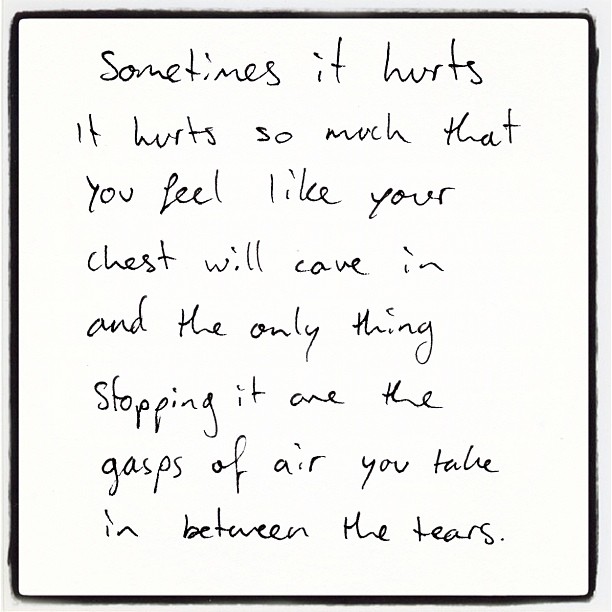 Sometimes it hurts
It hurts so much that
you feel like your
chest will cave in
and the only thing
stopping it are the
gasps of air you take
in between the tears.